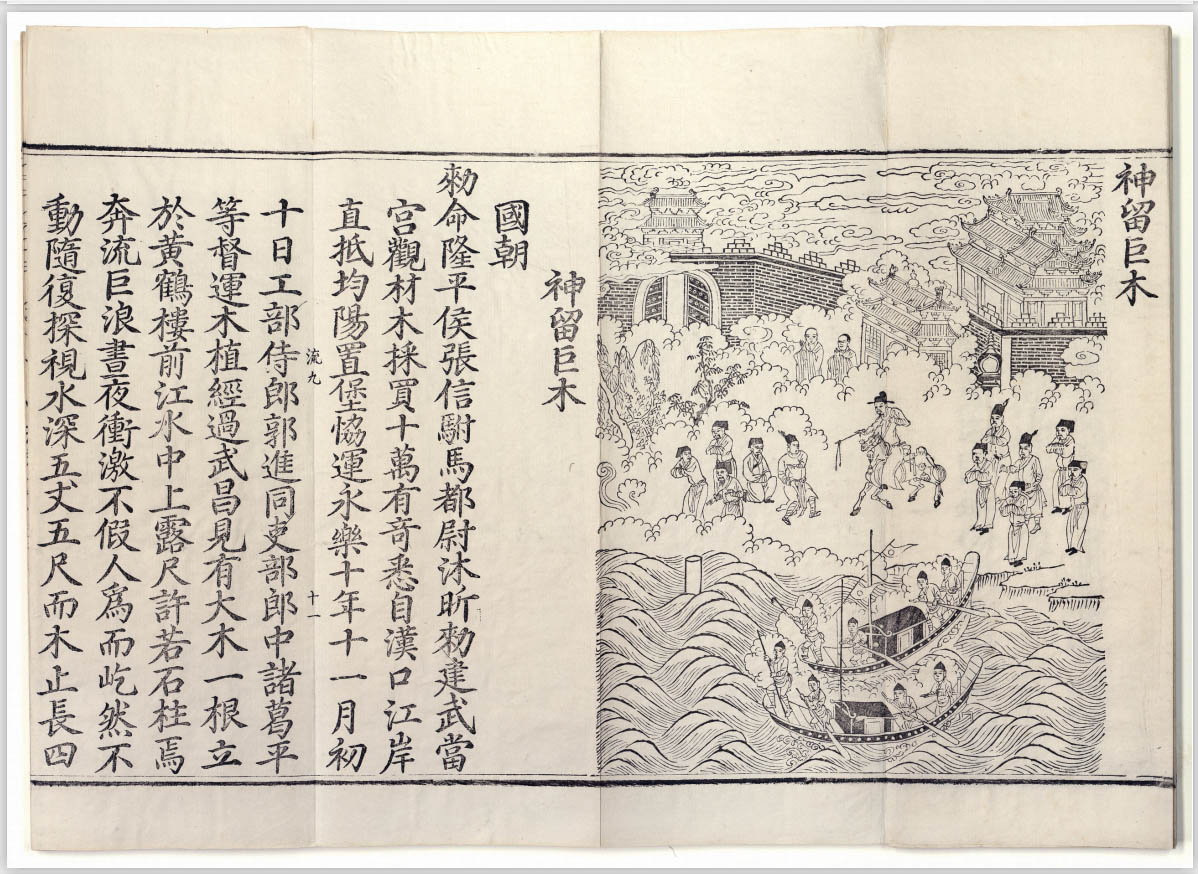 神留巨木
神留巨木
國朝
勑命隆平侯張信駙馬都尉沐昕勑建武當
宮觀材木採買十萬有奇悉自漢口江岸
直抵均陽置堡恊運永樂十年十一月初
流九
十一
十日工部侍郎郭進同吏部郎中諸葛平
等督運木植經過武昌見有大木一根立
於黃鶴樓前江水中上露尺許若石柱焉
奔流巨浪晝夜衝激不假人爲而屹然不
動隨復探視水深五丈五尺而木止長四